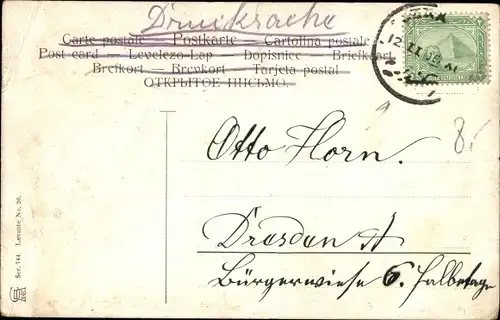 Drucksache
Carte postale Postkarte Cartolina postale
Post card Levelezo-Lap Dopisnice Briefkaart
Brefkort Brevkort Tarjeta postal
ОТКРЫТОЕ ПИСЬМО.
12 II 06
8.-
Otto Horn.
Dresden A
Bürgerwiese 6. Halbetage
Ser. 744 Levante No. 26.